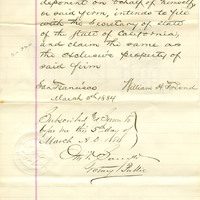 deponent on behalf of himself
or said firm, intends to file
with the Secretary of State
of the State of California,
and claim the same as
the exclusive property of
said firm
San Francisco William H. Friend
March 5th 1884
Subscribed and Sworn to
before me this 5th day of
March A.D. 1884
Notary Public